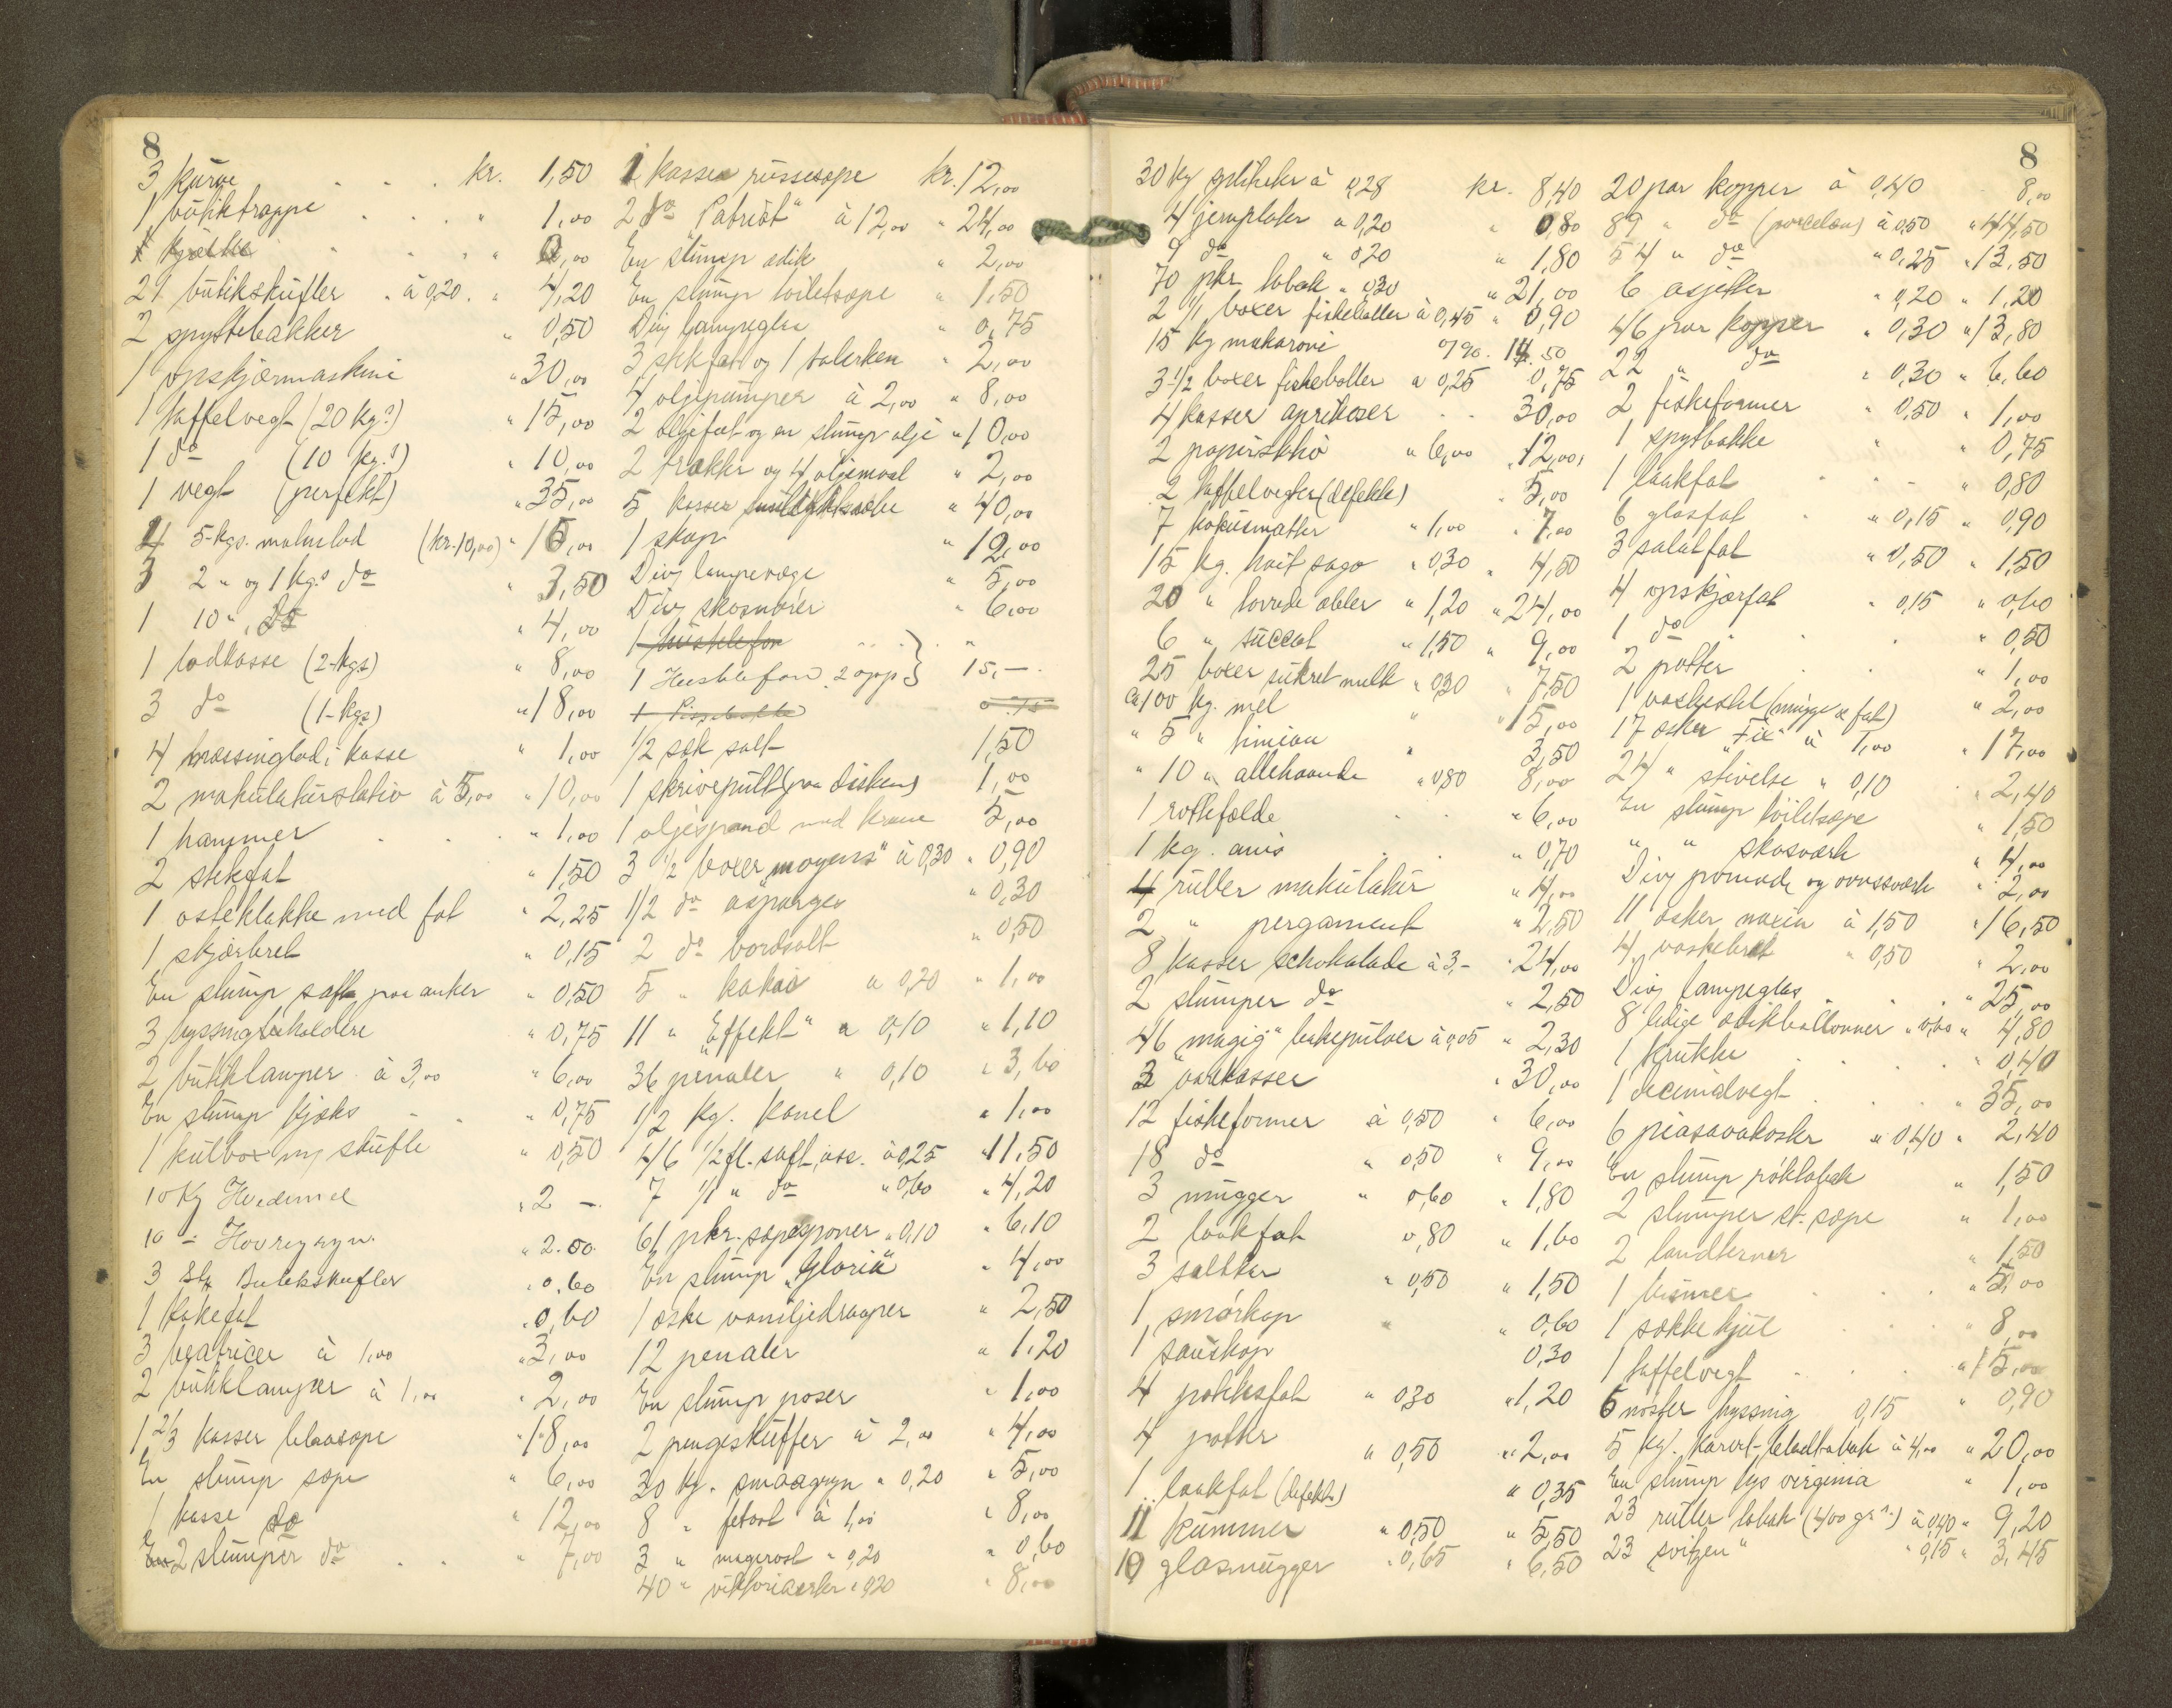 8
3 kurve . . . kr. 1,50
1 butiktrappe . . . " 1,00
1 kjökke . . . " 0,00
21 butikskufler à 0,20 " 4,20
2 spyttebakker " 0,50
1 opskjærmaskine " 30,00
1 taffelvegt (20 kg.s) " 15,00
1 do (10 kg.s) " 10,00
1 vegt (perfekt) " 35,00
4 5-kgs. malmlod (kr. 10,00) " 15,00
3 2 " og 1 kgs do " 3,50
1 10 ", do " 4,00
1 lodkasse (2-kgs) " 8,00
3 do (1-kgs) " 18,00
4 messinglod i kasse " 1,00
2 makulaturstativ à 5,00 " 10,00
1 hammer . . . " 1,00
2 stekfat " 1,50
1 osteklokke med fat " 2,25
1 skjærbret " 0,15
En slump saft paa anker " 0,50
3 hyssingbeholdere " 0,75
2 butiklamper à 3,00 " 6,00
En slump kjæks " 0,75
1 kulbox og skufle " 0,50
10 Kg Hvedemel " 2 –
10 – Havregryn " 2.00
3 Stk Butikskufler " 0.60
1 kakefat " 0,60
3 beatricer à 1,00 " 3,00
2 butiklamper à 1,00 " 2,00
1 2/3 kasser blaasope " 18,00
En slump sope " 6,00
1 kasse do " 12,00
En 2 slumper do . . " 7,00
1 kasse russesope kr. 12,00
2 do "Patriot" à 12,00 " 24,00
En slump edik " 2,00
En slump toiletsope " 1,50
Div lampeglas " 0,75
3 stkfat og 1 talerken " 2,00
4 oljepumper à 2,00 " 8,00
2 oljefat og en slump olje " 10,00
2 trakter og 4 oljemaal " 2,00
5 kasser " 40,00
1 skap " 12,00
Div lampevæge " 5,00
Div skosnører " 6,00
1 hustelefon . . "
1 Hustelefon 2 app } 15,–
1 0,75
1/2 sæk salt 1,50
1 skrivepult (paa disken) 1,00
1 oljespand med krane 5,00
3 1/2 boxer "moyens" à 0,30 " 0,90
1/2 do asparges " 0,30
2 do bordsalt " 0,50
5 " kakao a 0,20 " 1,00
11 " "Effekt" a 0,10 " 1,10
36 penaler " 0,10 " 3,60
1/2 kg. kanel " 1,00
46 1/2 fl. saft, ass. à 0,25 " 11,50
7 1/1 " do " 0,60 " 4,20
61 pkr. sopespaaner " 0,10 " 6,10
En slump "Gloria" " 4,00
1 æske vaniljedraaper " 2,50
12 penaler " 1,20
En slump poser " 1,00
2 pengeskuffer à 2,00 " 4,00
30 kg. smaagryn " 0,20 " 5,00
8 " fetost à 1,00 " 8,00
3 " magerost " 0,20 " 0,60
40 " viktoriaerter " 0,20 " 8,00
8
30 kg à 0,28 kr. 8,40
4 jernplater a 0,20 " 0,80
9 do " 0,20 " 1,80
70 pkr. tobak " 0,30 " 21,00
2 1/1 boxer fiskeboller à 0,45 " 0,90
15 kg makaroni 0,90. 14.50
3 1/2 boxer fiskeboller a 0,25 0,75
4 kasser aprikoser . . 30,00
2 papirsaks " 6,00 " 12,00
2 taffelvegter (defekte) " 5,00
7 kokusmatter " 1,00 " 7,00
15 kg. hvit sago " 0,30 " 4,50
20 " tørrede æbler " 1,20 " 24,00
6 " succat " 1,50 " 9,00
25 boxer sukret melk " 0,30 " 7,50
Ca 100 kg. mel " " 15,00
" 5 " timian " 3,50
" 10 " allehaande " 0,80 8,00
1 rottefælde . . " 6,00
1 kg. anis . . " 0,70
4 ruller makulatur " 4,00
2 " pergament " 2,50
8 kasser schokolade à 3,– " 24,00
2 slumper do " 2,50
46 "magig" bakepulver à 0,05 " 2,30
3 varekasser " 30,00
12 fiskeformer à 0,50 " 6,00
18 do " 0,50 " 9,00
3 mugger " 0,60 " 1,80
2 laakfat 0,80 " 1,60
3 saltkar " 0,50 " 1,50
1 smørkop " " 0,60
1 sauskop 0,30
4 potteskat " 0,30 " 1,20
4 potter " 0,50 " 2,00
1 laakfat (defekt) " 0,35
11 kummer " 0,50 " 5,50
10 glasmugger " 0,65 " 6,50
20 par kopper à 0,40 8,00
89 " do (porcelæn) à 0,50 " 44,50
54 " do " 0,25 " 13,50
6 asjetter " 0,20 " 1,20
46 par kopper " 0,30 " 13,80
22 " do " 0,30 " 6,60
2 fiskeformer " 0,50 " 1,00
1 spytbakke " " 0,75
1 laakfat . . " 0,80
6 glasfat " 0,15 " 0,90
3 salatfat " 0,50 " 1,50
4 opskjærfat " 0,15 " 0,60
1 do " . . " 0,50
2 potter . . " 1,00
1 vaskestel (mugge & fat) " 2,00
17 æsker "Fix" à 1,00 " 17,00
24 " stivelse " 0,10 " 2,40
En slump toiletsope " 1,50
" " skosværte " 4,00
Div pomade og ovnssværte " 2,00
11 æsker maxin à 1,50 " 16,50
4 vaskebret " 0,50 " 2,00
Div lampeglas . . " 25,00
8 ledige edikballonner " 0,60 " 4,80
1 krukke . . " 0,40
1 decimalvegt . . " 35,00
6 piasavakoster a 0,40 " 2,40
En slump røktobak " 1,50
2 slumper st. sope " 1,00
2 landterner " 1,50
1 bismer . . " 5,00
1 sækkehjul . . " 8,00
1 taffelvegt . . " 15,00
6 nøster hyssing 0,15 " 0,90
5 kg. karert-bladtobak à 4,00 " 20,00
En slump lys virginia " 1,00
23 ruller tobak (400 gr.s) à 0,40 " 9,20
23 " " 0,15 " 3,45